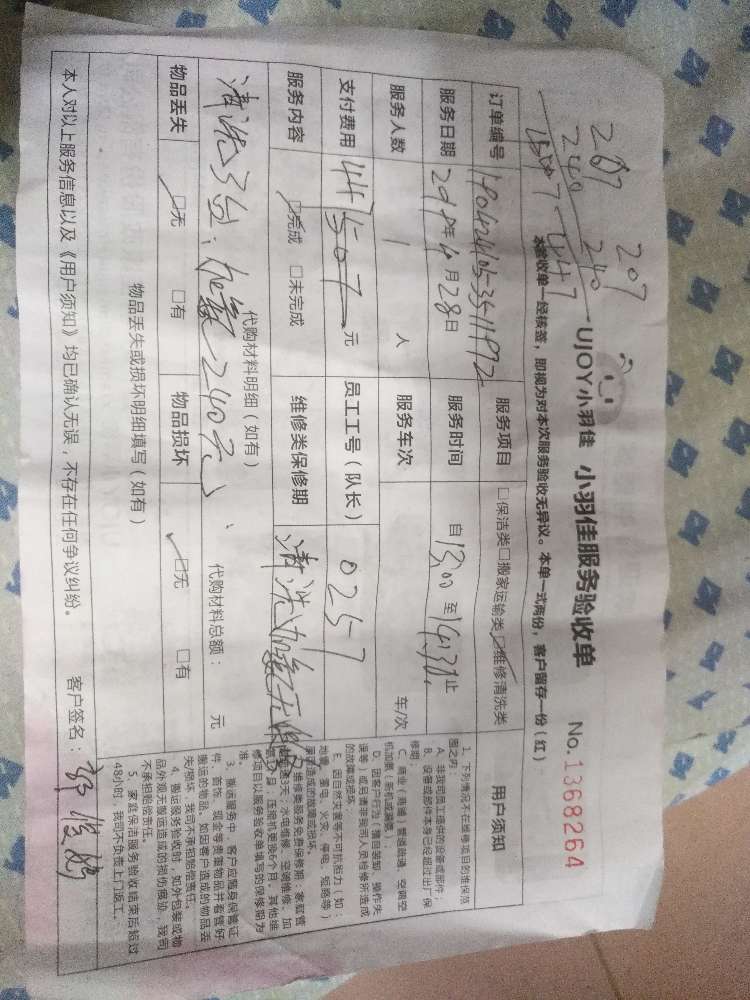 207
240
447
207
240
UJOY小羽佳 小羽佳服务验收单 No.1368264
本验收单一经核签，即视为对本次服务验收无异议。本单一式两份，客户留存一份（红）
订单编号 服务项目 □保洁类□搬家运输类☑维修清洗类 用户须知
服务日期 年4月28日 服务时间 自13:00至14:30止
服务人数 1人 服务车次 车/次
支付费用 元 员工工号（队长） 0257
服务内容 ☑完成 □未完成 维修类保修期 清洗加氨无保
代购材料明细（如有） 代购材料总额： 元
清洗3台；加氨240元；
物品丢失 ☑无 □有 物品损坏 ☑无 □有
物品丢失或损坏明细填写（如有）
本人对以上服务信息以及《用户须知》均已确认无误，不存在任何争议纠纷。 客户签名：
1、下列情况不在维修项目的维保范
围之内：
A、非我司员工提供的设备或部件；
B、设备或部件本身已经超过出厂保
修期；
C、商业（商铺）管道疏通、空调空
机加氨（新机或漏氨）；
D、因客户行为（擅自装卸、操作失
误等）或另请非我司人员检修所造成
的故障或损坏。
E、因自然灾害等不可抗拒力（如：
地震、雷电、火灾、停电、短路等）
原因造成的故障或损坏。
3、搬运服务中，客户应随身保管证
件、首饰、现金等贵重物品并看管好
搬运的物品。如因客户造成的物品丢
失/损坏，我司不承担赔偿责任。
4、搬运服务验收时，如外包装或物
品外观无搬运造成的损伤痕迹，我司
不承担赔偿责任。
5、家庭保洁服务验收结束后超过
48小时，我司不负责上门返工。